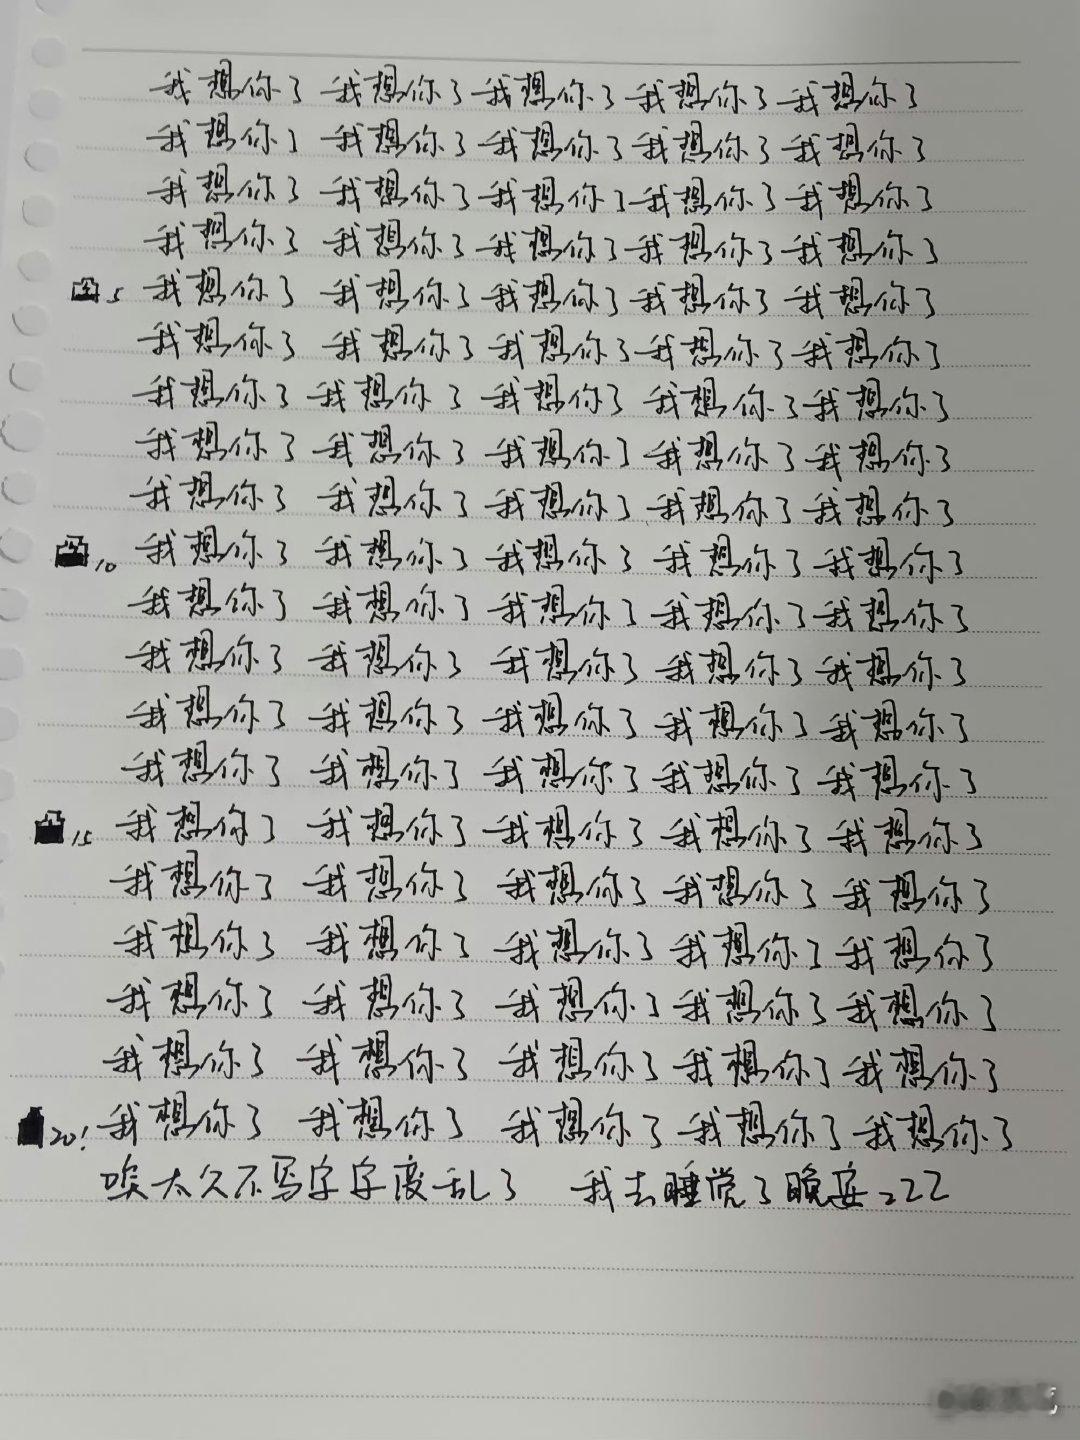 我想你了 我想你了 我想你了 我想你了 我想你了
我想你了 我想你了 我想你了 我想你了 我想你了
我想你了 我想你了 我想你了 我想你了 我想你了
我想你了 我想你了 我想你了 我想你了 我想你了
5 我想你了 我想你了 我想你了 我想你了 我想你了
我想你了 我想你了 我想你了 我想你了 我想你了
我想你了 我想你了 我想你了 我想你了 我想你了
我想你了 我想你了 我想你了 我想你了 我想你了
我想你了 我想你了 我想你了 我想你了 我想你了
10 我想你了 我想你了 我想你了 我想你了 我想你了
我想你了 我想你了 我想你了 我想你了 我想你了
我想你了 我想你了 我想你了 我想你了 我想你了
我想你了 我想你了 我想你了 我想你了 我想你了
我想你了 我想你了 我想你了 我想你了 我想你了
15 我想你了 我想你了 我想你了 我想你了 我想你了
我想你了 我想你了 我想你了 我想你了 我想你了
我想你了 我想你了 我想你了 我想你了 我想你了
我想你了 我想你了 我想你了 我想你了 我想你了
我想你了 我想你了 我想你了 我想你了 我想你了
20! 我想你了 我想你了 我想你了 我想你了 我想你了
唉太久不写字字变乱了 我去睡觉了晚安zZZZ